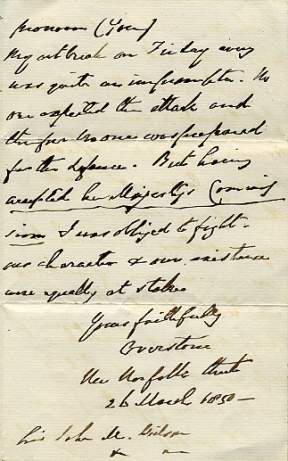 pronoun (You)
My outbreak on Friday evng
was quite an impromptu. No
one expected the attack and
therefore no one was prepared
for the defence. But having
accepted her Majesty's Commis
sion I was obliged to fight—
our character & our existence
were equally at stake
Yours faithfully
Overstone
New Norfolk Street
26 March 1850—
Sir John M.